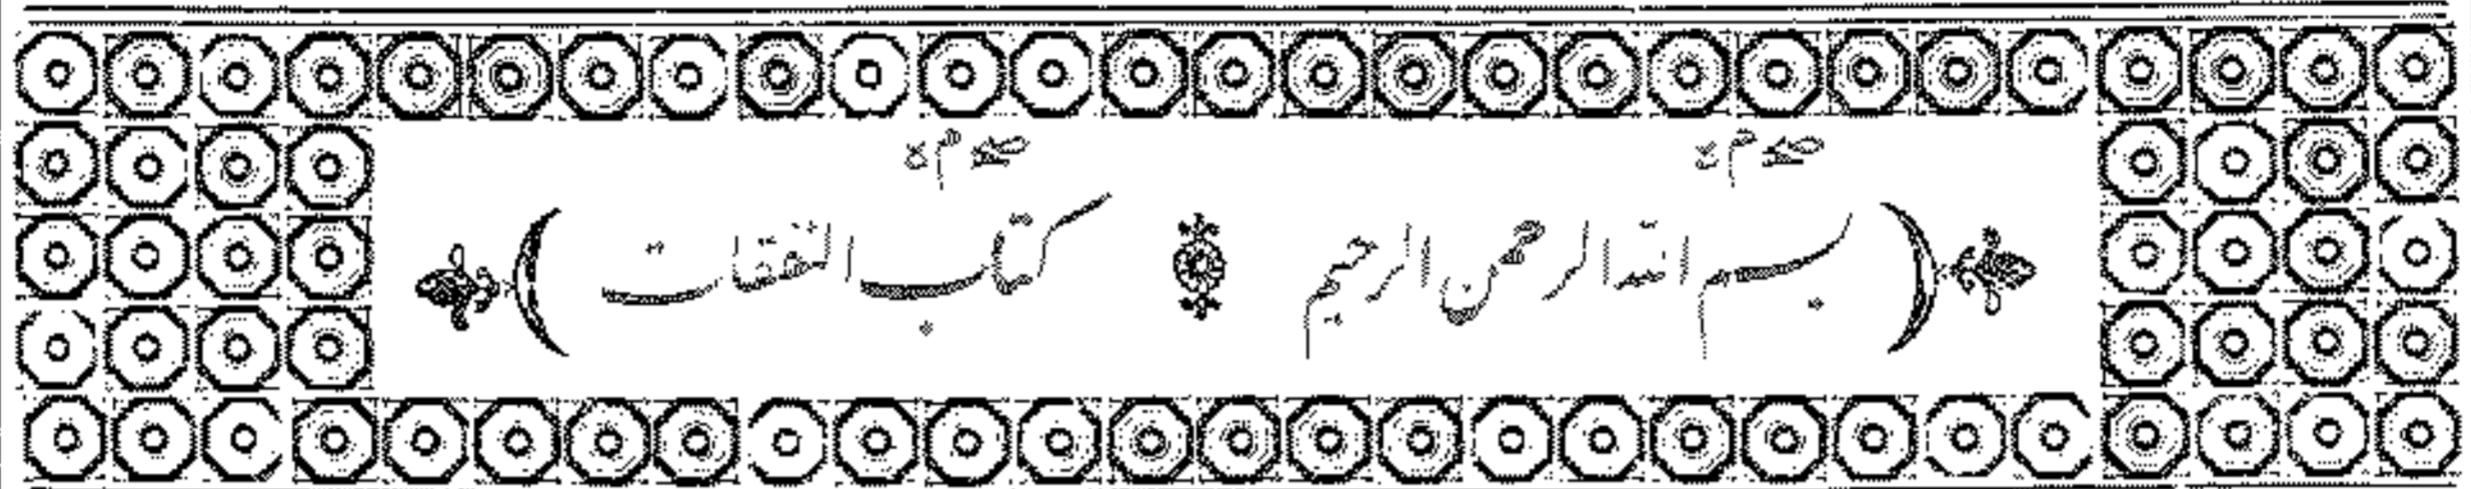 (بسم الله الرحمن الرحيم كتاب النفقات)